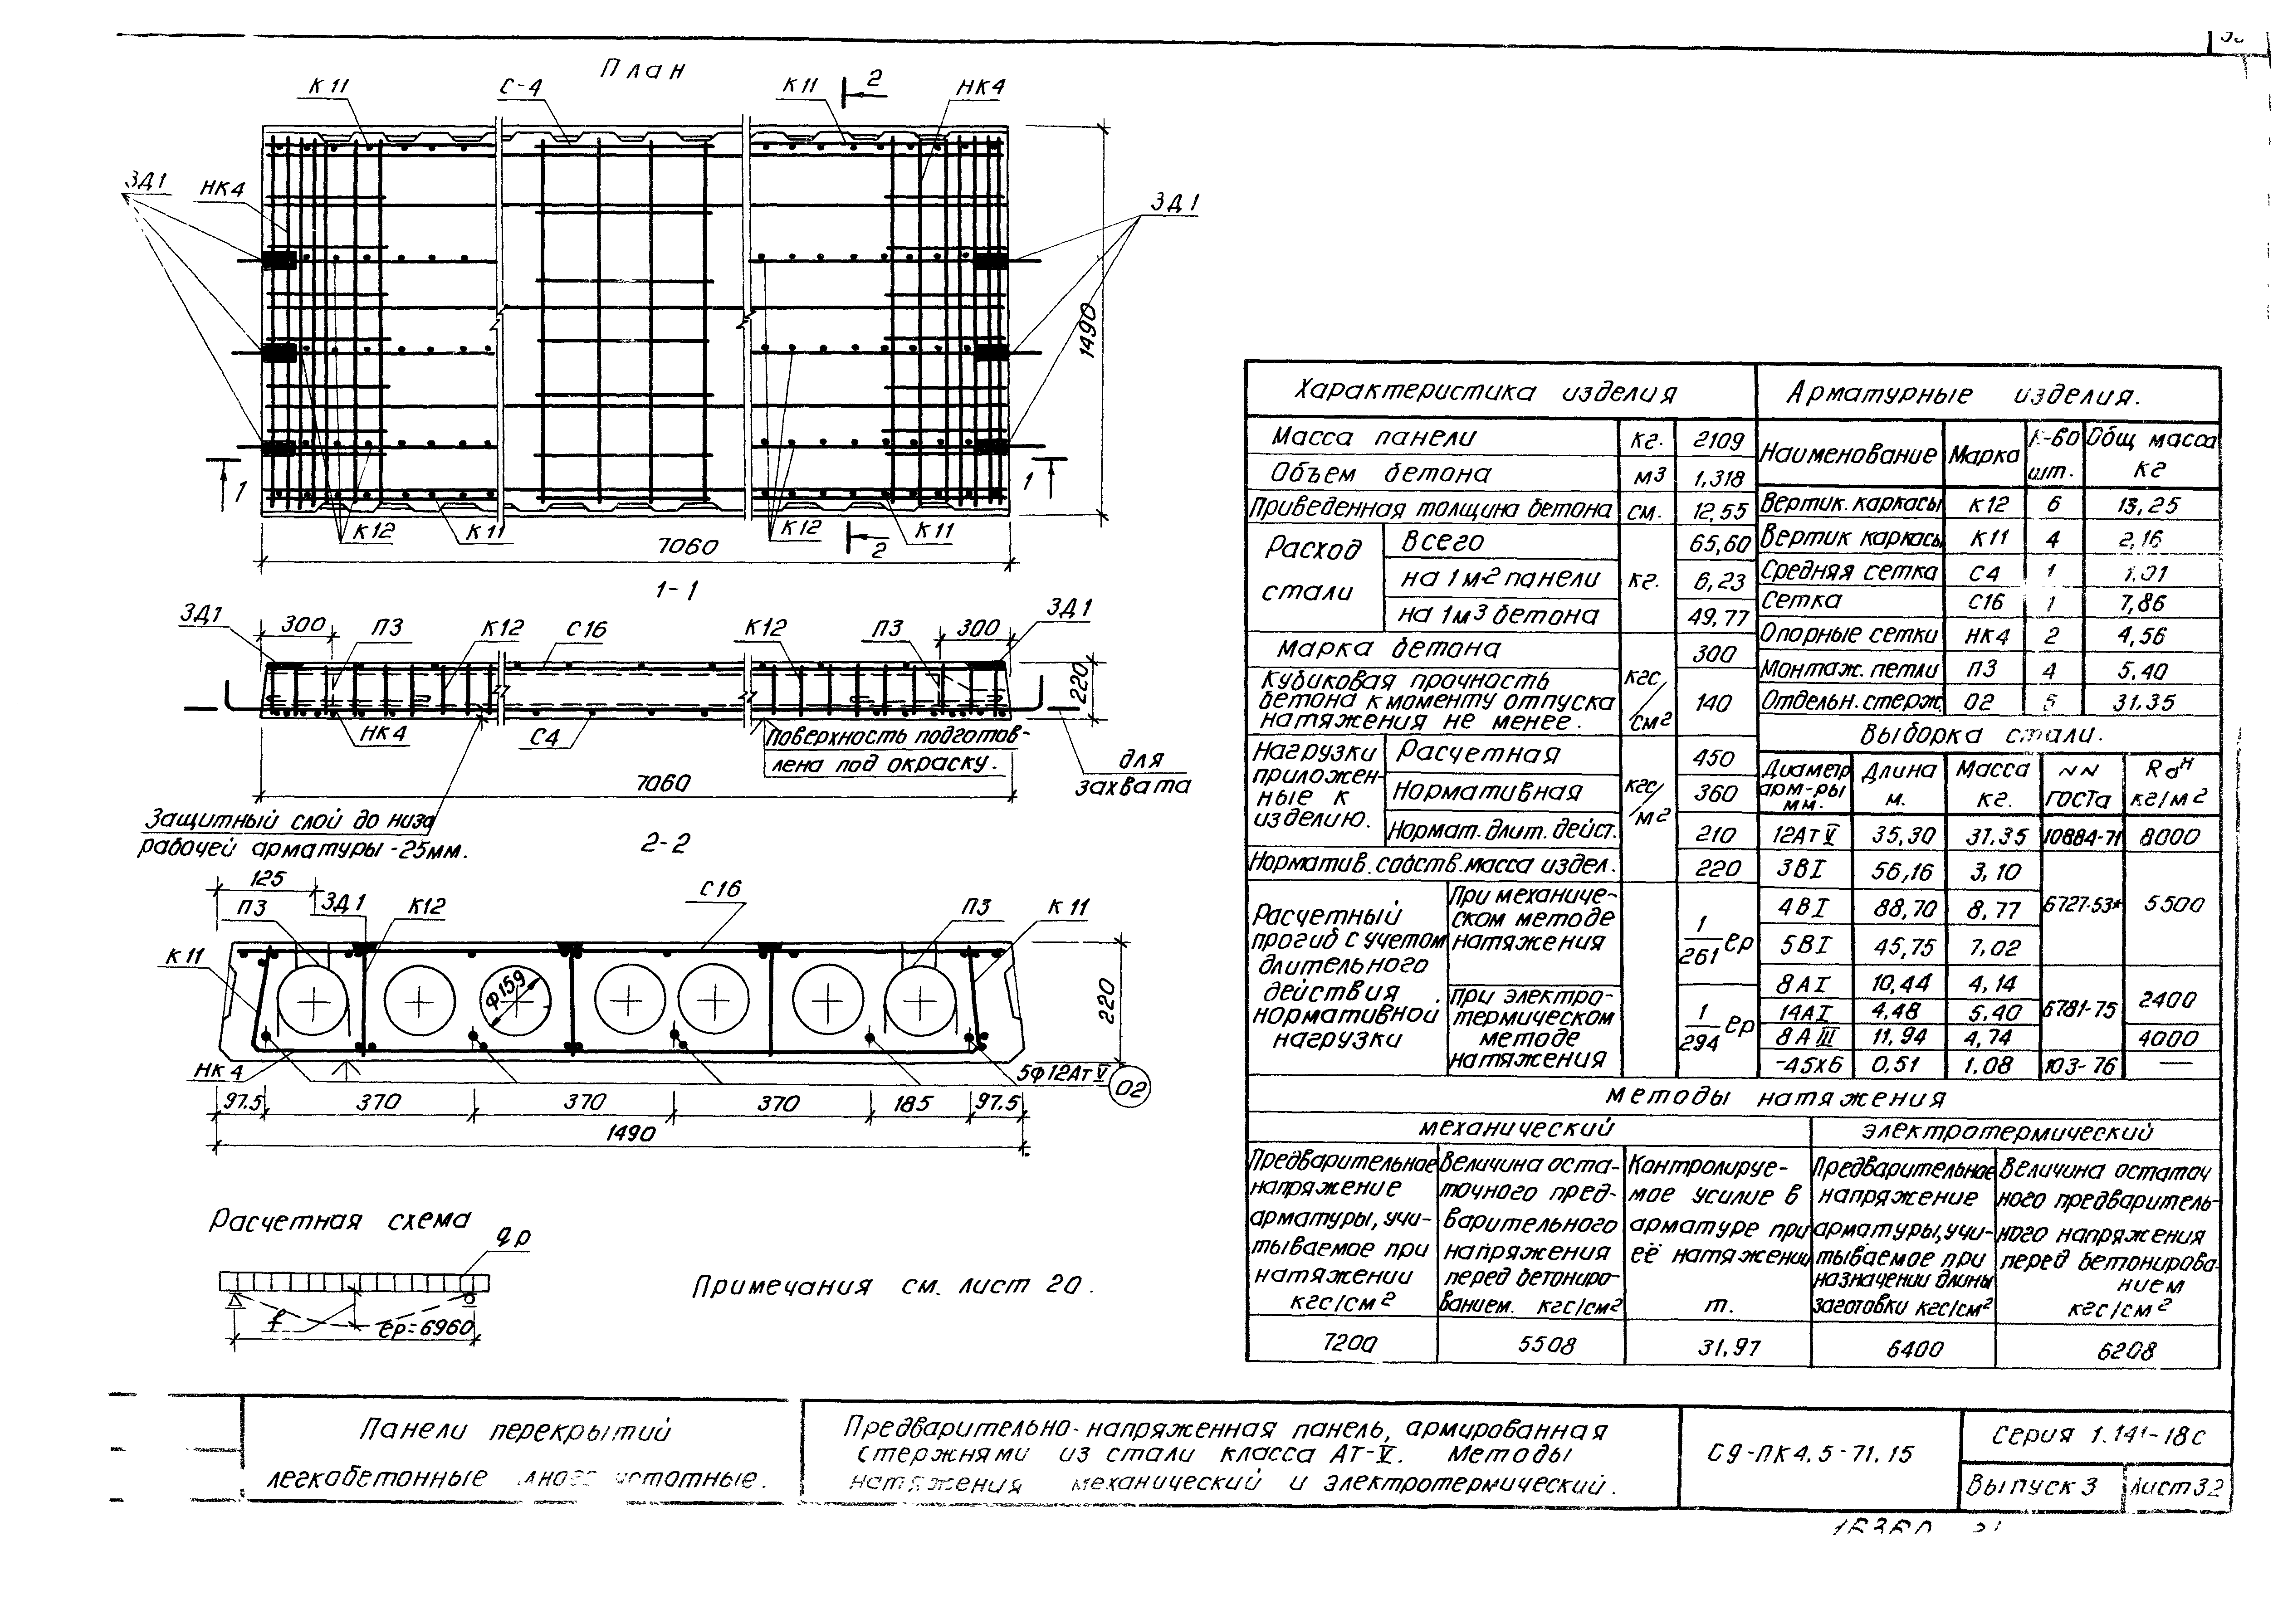 План
К 11
С-4
К 11
2
НК4
ЗД1
НК4
ЗД1
1490
1
1
К12
К 11
К12
2
К 11
7060
1-1
ЗД1
300
П3
К12
С16
К12
П3
300
ЗД1
220
НК4
С4
Поверхность подготов-
лена под окраску.
для
захвата
7060
Защитный слой до низа
рабочей арматуры -25мм.
2-2
125
П3
ЗД1
К12
С16
П3
К 11
К 11
ф159
220
НК 4
5ф12Ат V
02
97.5
370
370
370
185
97.5
1490
Расчетная схема
qр
f
ер=6960
Примечания см. лист 20.
Характеристика изделия
Масса панели кг. 2109
Объем бетона м3 1,318
Приведенная толщина бетона см. 12,55
Расход стали
Всего 65,60
на 1м2 панели кг. 6,23
на 1м3 бетона 49,77
Марка бетона 300
Кубиковая прочность
бетона к моменту отпуска
натяжения не менее.
кгс/см2
140
Нагрузки
приложен-
ные к
изделию.
Расчетная 450
Нормативная 360
кгс/м2
Нормат. длит. дейст. 210
Норматив. собств. масса издел. 220
Расчетный
прогиб с учетом
длительного
действия
нормативной
нагрузки
При механиче-
ском методе
натяжения
1/261 ер
при электро-
термическом
методе
натяжения
1/294 ер
Арматурные изделия.
Наименование Марка К-во шт. Общ масса кг
Вертик. каркасы К12 6 13,25
Вертик каркасы К11 4 2,16
Средняя сетка С4 1 1,01
Сетка С16 1 7,86
Опорные сетки НК4 2 4,56
Монтаж. петли П3 4 5,40
Отдельн. стерж. О2 5 31.35
Выборка стали.
Диаметр арм-ры мм. Длина м. Масса кг. NN ГОСТа Rан кг/м2
12Ат V 35,30 31.35 10884-71 8000
3ВI 56,16 3,10
4ВI 88,70 8,77 6727-53* 5500
5ВI 45,75 7,02
8АI 10,44 4,14
14АI 4,48 5,40 6781-75 2400
8АIII 11,94 4,74 4000
-45х6 0,51 1,08 103-76 —
методы натяжения
механический
электротермический
Предварительное
напряжение
арматуры, учи-
тываемое при
натяжении
кгс/см2
Величина оста-
точного пред-
варительного
напряжения
перед бетониро-
ванием. кгс/см2
Контролируе-
мое усилие в
арматуре при
её натяжении
т.
Предварительное
напряжение
арматуры, учи-
тываемое при
назначении длины
заготовки кгс/см2
Величина остаточ
ного предваритель-
ного напряжения
перед бетонирова-
нием
кгс/см2
7200 5508 31,97 6400 6208
Панели перекрытий
легкобетонные
Предварительно-напряженная панель, армированная
стержнями из стали класса Ат-V. Методы
натяжения - механический и электротермический.
С9-ПК4,5-71.15
Серия 1.141-18с
Выпуск 3
Лист 32